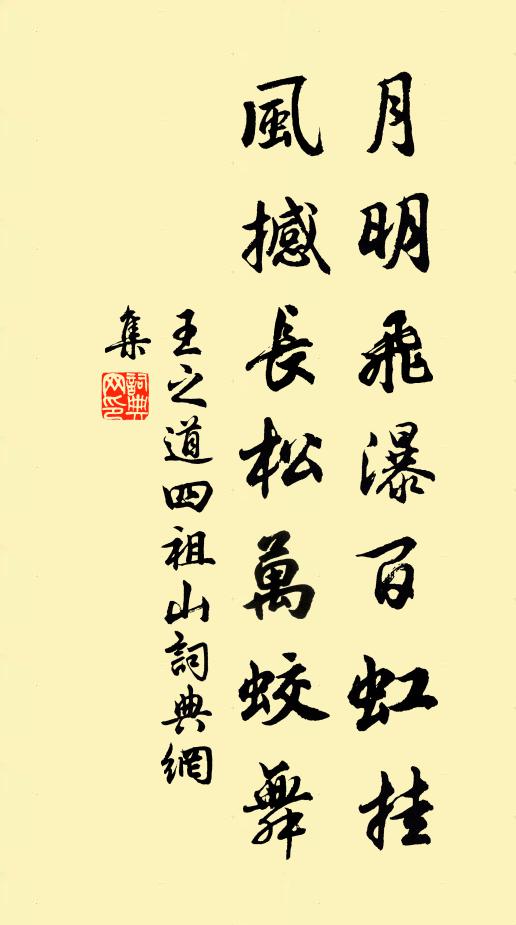 月明飛瀑百虹挂
風撼長松萬蛟舞
王之道四祖山詞典網
集
詞典网印